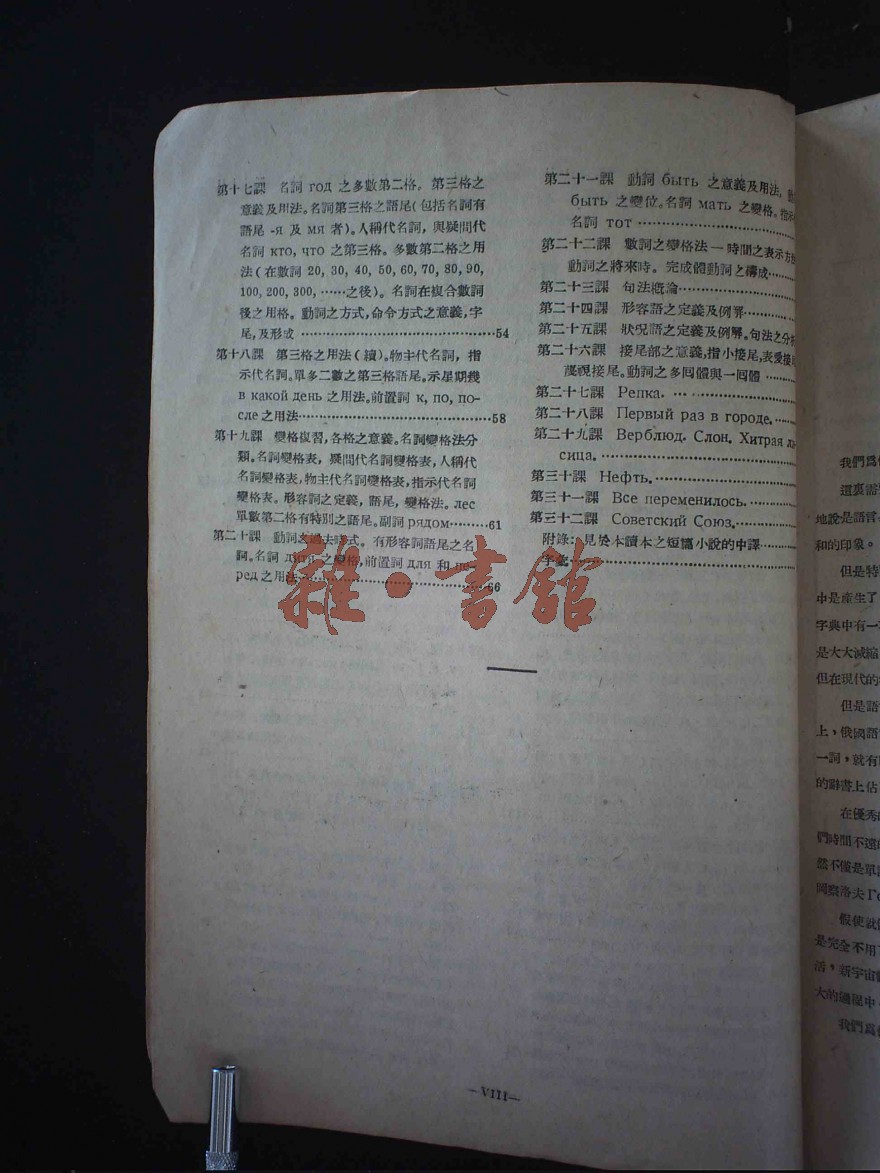 第十七課 名詞 год 之多數第二格，第三格之
意義及用法。名詞第三格之語尾(包括名詞有
語尾 -я 及 мя 者)。人稱代名詞，與疑問代
名詞 кто, что 之第三格。多數第二格之用
法(在數詞 20, 30, 40, 50, 60, 70, 80, 90,
100, 200, 300, ……之後)。名詞在複合數詞
後之用格。動詞之方式，命令方式之意義，字
尾，及形成 ……54
第十八課 第三格之用法(續)。物主代名詞，指
示代名詞。單多二數之第三格語尾。示星期幾
в какой день 之用法。前置詞 к, по, по-
сле 之用法……58
第十九課 變格復習，各格之意義。名詞變格法分
類。名詞變格表，疑問代名詞變格表，人稱代
名詞變格表，物主代名詞變格表，指示代名詞
變格表。形容詞之定義，語尾，變格法。лес
單數第二格有特別之語尾。副詞 рядом……61
第二十課 動詞之過去時式。有形容詞語尾之名
詞。名詞 дитя 之變格，前置詞 для 和 пе-
ред 之用法……66
第二十一課 動詞 быть 之意義及用法，動
быть 之變位。名詞 мать 之變格。指示
名詞 тот ……
第二十二課 數詞之變格法—時間之表示方
動詞之將來時。完成體動詞之構成……
第二十三課 句法概論……
第二十四課 形容語之定義及例解……
第二十五課 狀況語之定義及例解。句法之分
第二十六課 接尾部之意義，指小接尾，表愛接
蔑視接尾。動詞之多囘體與一囘體 ……
第二十七課 Репка. ……
第二十八課 Первый раз в городе. ……
第二十九課 Верблюд. Слон. Хитрая ли-
сица. ……
第三十課 Нефть. ……
第三十一課 Все переменилось. ……
第三十二課 Советский Союз. ……
附錄：見於本讀本之短篇小說的中譯……
字彙……
雜·書館
—VIII—
我們爲
這裏需
地說是語言
和的印象。
但是特
中是產生了
字典中有一
是大大減縮
但在現代的
但是語
上，俄國語
一詞，就有
的辭書上佔
在優秀
們時間不遠
然不僅是單
岡察洛夫 Го
假使就
是完全不用
活，新宇宙
大的過程中
我們爲